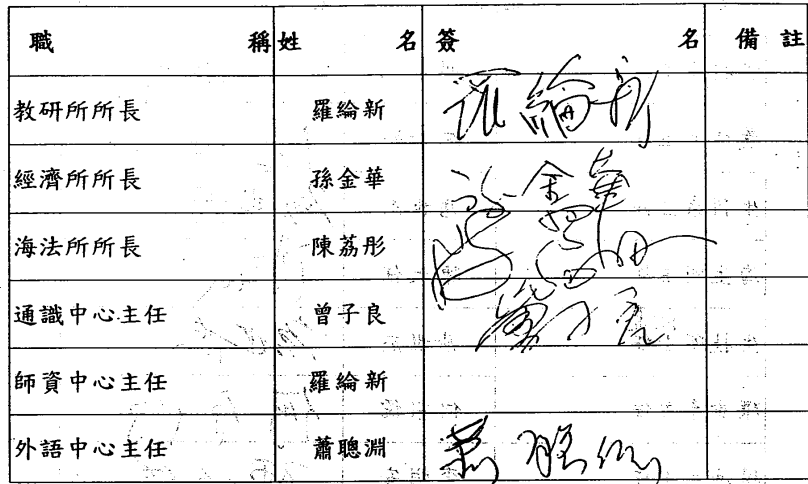 職稱 姓名 簽名 備註
教研所所長 羅綸新 羅綸新
經濟所所長 孫金華 孫金華
海法所所長 陳荔彤
通識中心主任 曾子良 曾子良
師資中心主任 羅綸新
外語中心主任 蕭聰淵 蕭聰淵